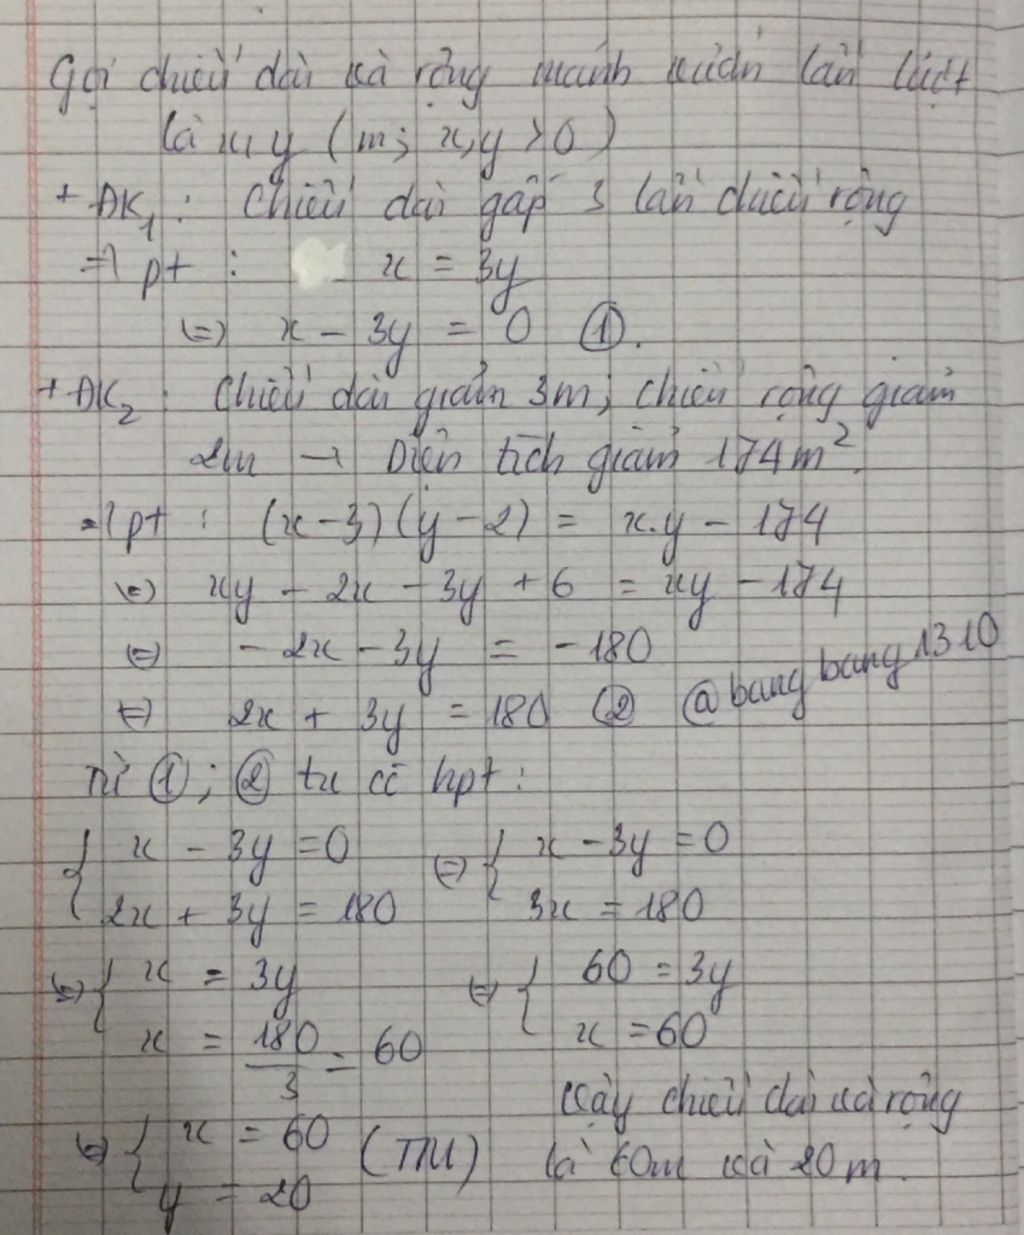 Gọi chiều dài và rộng mảnh vườn lần lượt
là x, y (m; x, y > 0)
+ ĐK1 : Chiều dài gấp 3 lần chiều rộng
=> pt : x = 3y
<=> x - 3y = 0 ①.
+ ĐK2 : Chiều dài giảm 3m; chiều rộng giảm
2m → Diện tích giảm 174m².
=> pt : (x - 3)(y - 2) = x.y - 174
<=> xy - 2x - 3y + 6 = xy - 174
<=> - 2x - 3y = - 180
<=> 2x + 3y = 180 ② @bangbang1310
Từ ①; ② ta có hpt :
{ x - 3y = 0 <=> { x - 3y = 0
2x + 3y = 180 3x = 180
<=> { x = 3y <=> { 60 = 3y
x = 180/3 = 60 x = 60
Vậy chiều dài và rộng
<=> { x = 60 (TM) là 60m và 20m.
y = 20